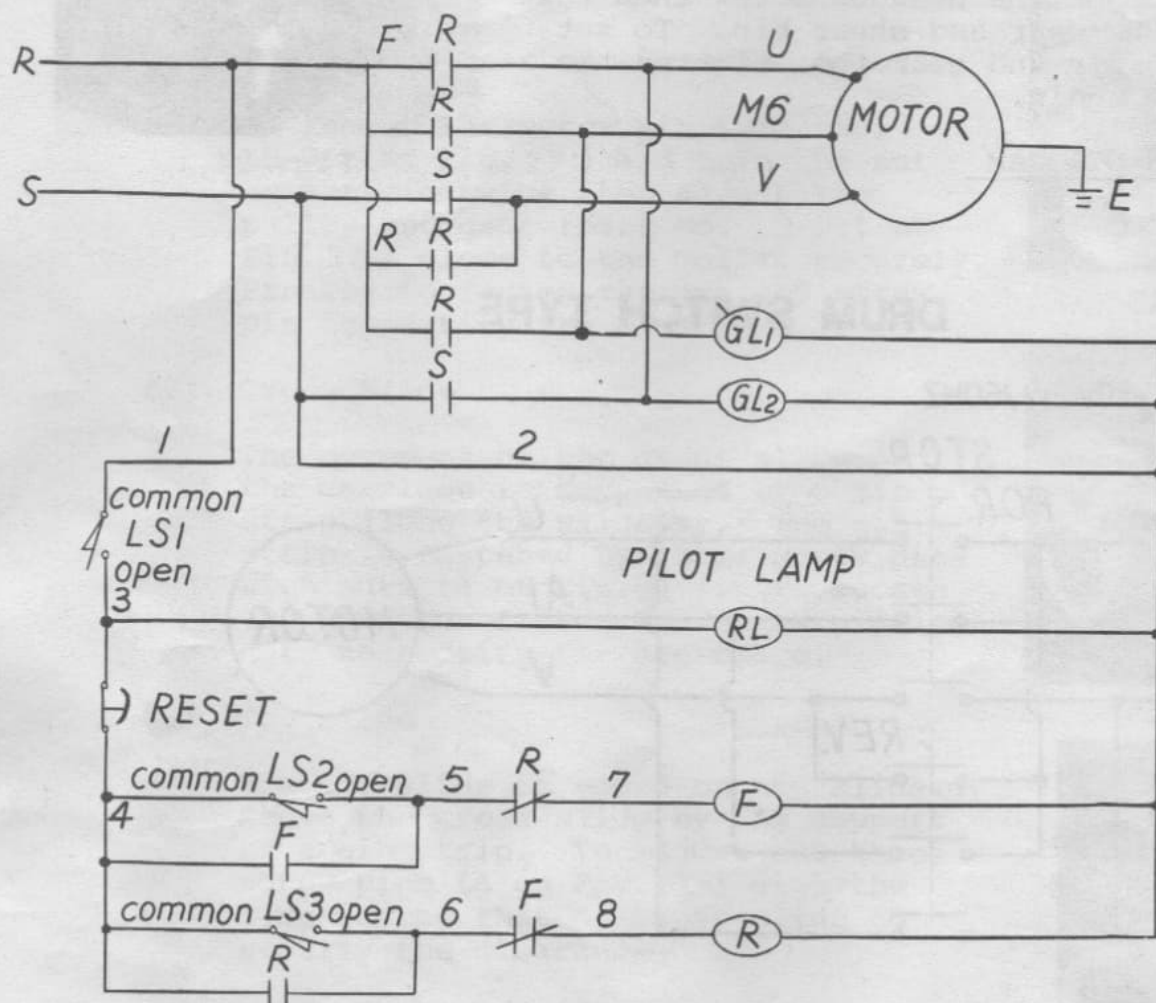 F R U
R
R M6 MOTOR
S V
S E
R R
R GL1
S GL2
1 2
common
LS1
open PILOT LAMP
3
RL
RESET
common LS2 open 5 R 7 F
4
F
common LS3 open 6 F 8 R
R